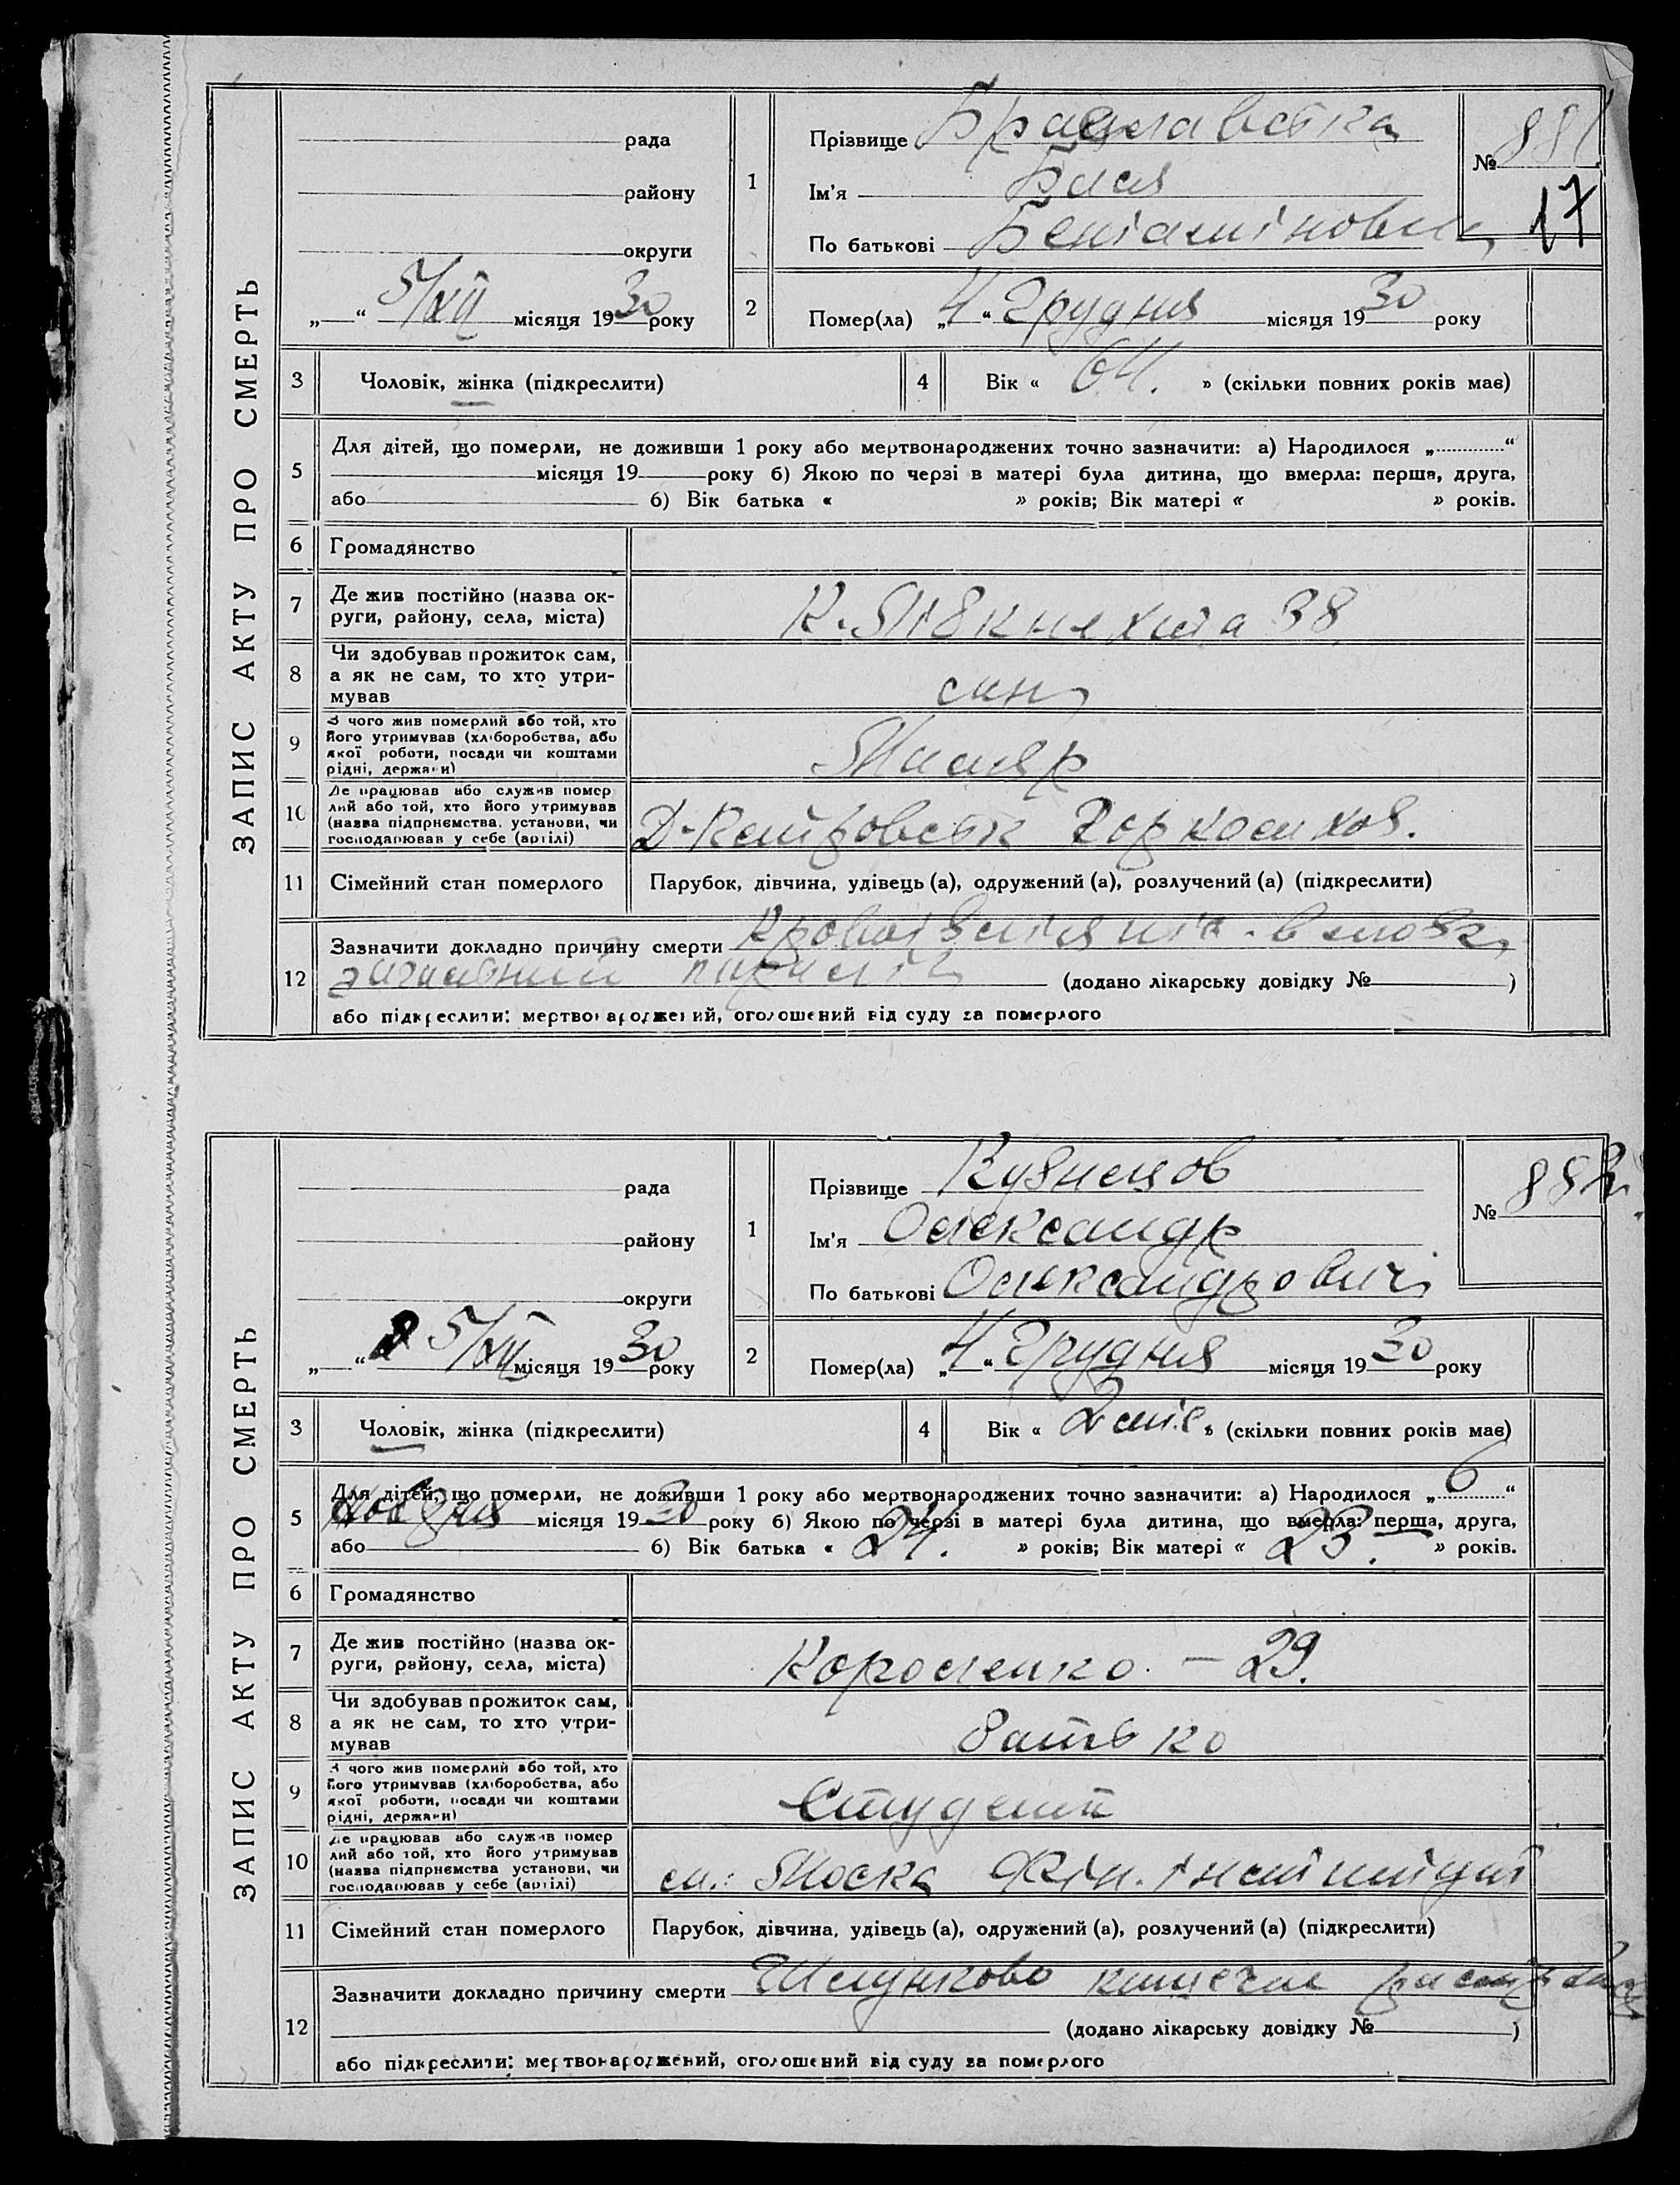 ЗАПИС АКТУ ПРО СМЕРТЬ
рада
району
округи
„ “ 5/XII місяця 1930 року
1
Прізвище Брацлавська
Ім'я Бася
По батькові Беніаміновна
№ 881.
17
2
Помер(ла) „4“ Грудня місяця 1930 року
3
Чоловік, жінка (підкреслити)
4
Вік « 64. » (скільки повних років має)
5
Для дітей, що померли, не доживши 1 року або мертвонароджених точно зазначити: а) Народилося „ “
місяця 19 року б) Якою по черзі в матері була дитина, що вмерла: перша, друга,
або б) Вік батька « » років; Вік матері « » років.
6
Громадянство
7
Де жив постійно (назва ок-
руги, району, села, міста)
К. Лібкнехта 38
8
Чи здобував прожиток сам,
а як не сам, то хто утри-
мував
син
9
З чого жив померлий або той, хто
його утримував (хліборобства, або
якої роботи, посади чи коштами
рідні, держави)
Маляр
10
Де працював або служив помер
лий або той, хто його утримував
(назва підприємства, установи, чи
господарював у себе (артілі)
Д-Петровськ
11
Сімейний стан померлого
Парубок, дівчина, удівець (а), одружений (а), розлучений (а) (підкреслити)
12
Зазначити докладно причину смерти
(додано лікарську довідку № )
або підкреслити: мертвонароджений, оголошений від суду за померлого
ЗАПИС АКТУ ПРО СМЕРТЬ
рада
району
округи
„ “ 5/XII місяця 1930 року
1
Прізвище Кузнецов
Ім'я Олександр
По батькові Олександрович
№ 882.
2
Помер(ла) „4“ Грудня місяця 1930 року
3
Чоловік, жінка (підкреслити)
4
Вік « 2 міс » (скільки повних років має)
5
Для дітей, що померли, не доживши 1 року або мертвонароджених точно зазначити: а) Народилося „ 6 “
Жовтня місяця 1930 року б) Якою по черзі в матері була дитина, що вмерла: перша, друга,
або б) Вік батька « 24. » років; Вік матері « 23. » років.
6
Громадянство
7
Де жив постійно (назва ок-
руги, району, села, міста)
Короленко - 29.
8
Чи здобував прожиток сам,
а як не сам, то хто утри-
мував
батько
9
З чого жив померлий або той, хто
його утримував (хліборобства, або
якої роботи, посади чи коштами
рідні, держави)
Студент
10
Де працював або служив помер
лий або той, хто його утримував
(назва підприємства установи, чи
господарював у себе (артілі)
м. Москва Фін. інститут
11
Сімейний стан померлого
Парубок, дівчина, удівець (а), одружений (а), розлучений (а) (підкреслити)
12
Зазначити докладно причину смерти Шлунково
(додано лікарську довідку № )
або підкреслити: мертвонароджений, оголошений від суду за померлого